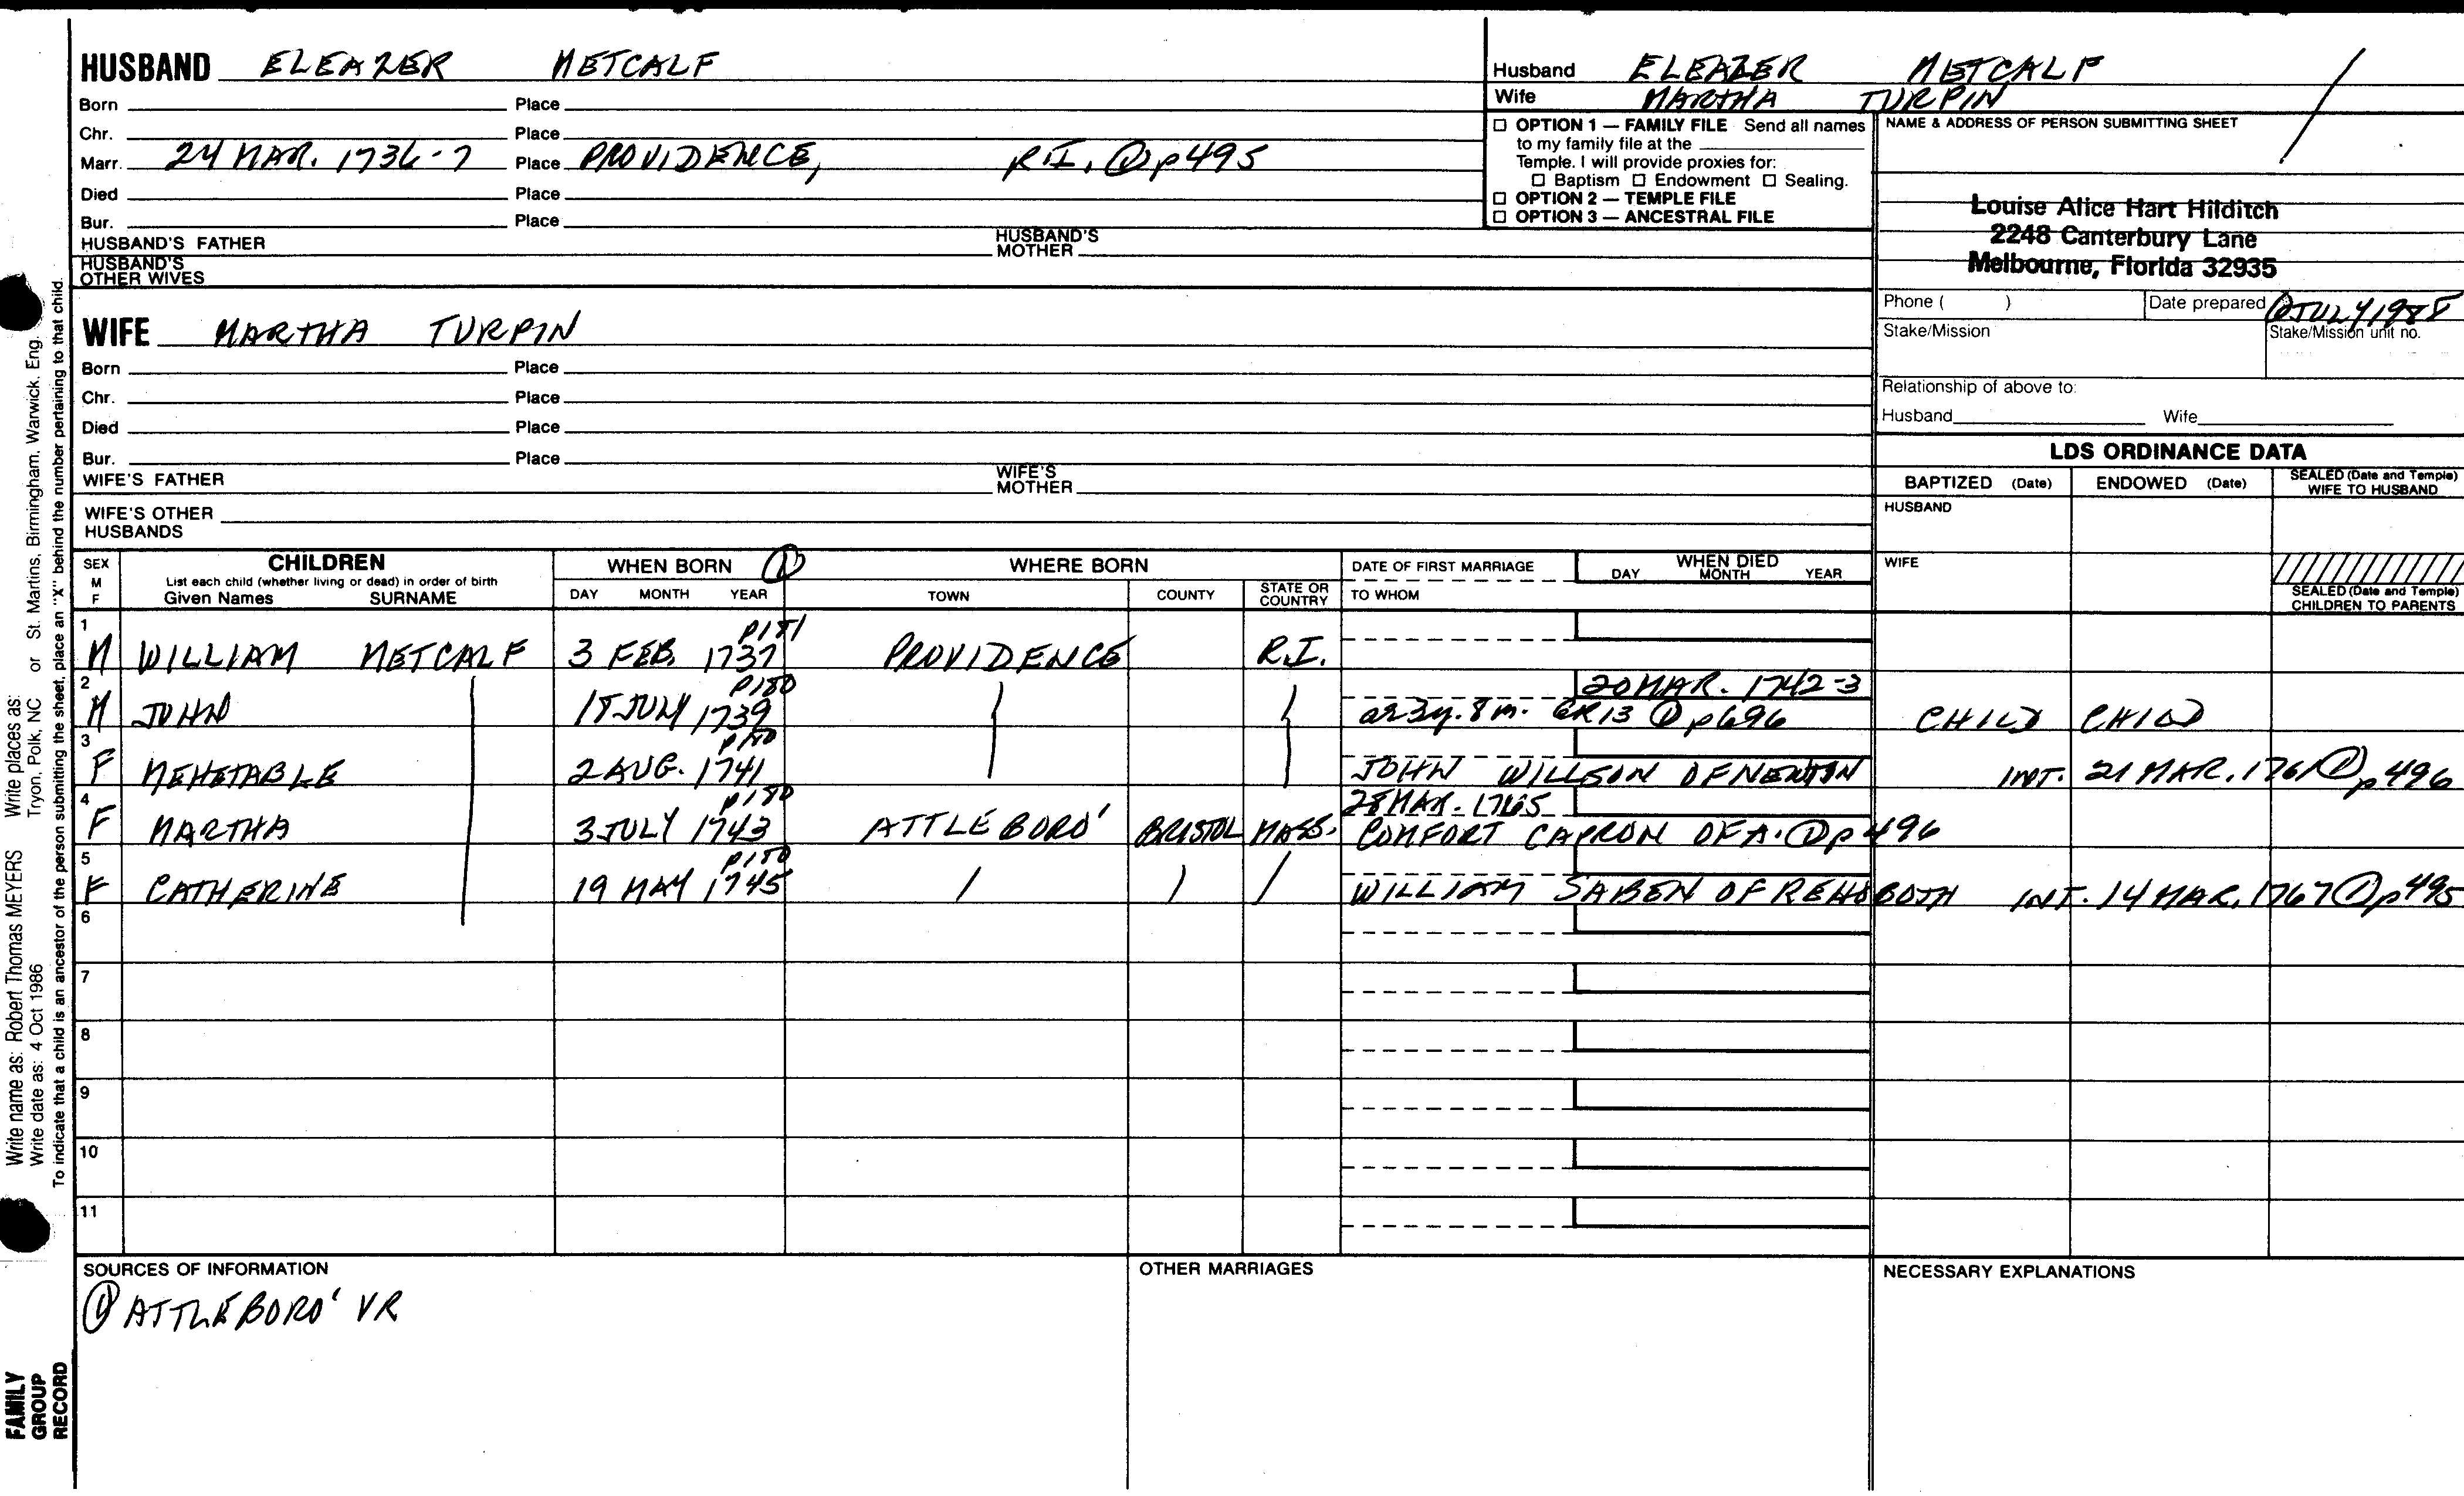 HUSBAND ELEAZER METCALF
Born Place
Chr. Place
Marr. 24 MAR. 1736-7 Place PROVIDENCE, R.I. ① p495
Died Place
Bur. Place
HUSBAND'S FATHER HUSBAND'S MOTHER
HUSBAND'S OTHER WIVES
WIFE MARTHA TURPIN
Born Place
Chr. Place
Died Place
Bur. Place
WIFE'S FATHER WIFE'S MOTHER
WIFE'S OTHER HUSBANDS
Husband ELEAZER METCALF
Wife MARTHA TURPIN
OPTION 1 — FAMILY FILE Send all names
to my family file at the
Temple. I will provide proxies for:
Baptism Endowment Sealing.
OPTION 2 — TEMPLE FILE
OPTION 3 — ANCESTRAL FILE
NAME & ADDRESS OF PERSON SUBMITTING SHEET
Louise Alice Hart Hilditch
2248 Canterbury Lane
Melbourne, Florida 32935
Phone ( ) Date prepared JULY 1988
Stake/Mission Stake/Mission unit no.
Relationship of above to:
Husband Wife
LDS ORDINANCE DATA
BAPTIZED (Date) ENDOWED (Date) SEALED (Date and Temple) WIFE TO HUSBAND
HUSBAND
WIFE
SEALED (Date and Temple) CHILDREN TO PARENTS
SEX M F
CHILDREN
List each child (whether living or dead) in order of birth
Given Names SURNAME
WHEN BORN ①
DAY MONTH YEAR
WHERE BORN
TOWN COUNTY STATE OR COUNTRY
DATE OF FIRST MARRIAGE
TO WHOM
WHEN DIED
DAY MONTH YEAR
1 p181
M WILLIAM METCALF 3 FEB. 1737 PROVIDENCE R.I.
2 p180 20 MAR. 1742-3
M JOHN 18 JULY 1739 ae 3y. 8m. GR13 ① p696 CHILD CHILD
3 p180
F MEHETABLE 2 AUG. 1741 JOHN WILLSON OF NEWTON INT. 21 MAR. 1761 ① p496
4 p180 28 MAR. 1765
F MARTHA 3 JULY 1743 ATTLEBORO' BRISTOL MASS. COMFORT CAPRON OF A. ① p496
5 p180
F CATHERINE 19 MAY 1745 WILLIAM SABEN OF REHOBOTH INT. 14 MAR. 1767 ① p495
6
7
8
9
10
11
SOURCES OF INFORMATION
① ATTLEBORO' VR
OTHER MARRIAGES
NECESSARY EXPLANATIONS
Write name as: Robert Thomas MEYERS Write places as:
Write date as: 4 Oct 1986 Tryon, Polk, NC or St. Martins, Birmingham, Warwick, Eng.
To indicate that a child is an ancestor of the person submitting the sheet, place an "X" behind the number pertaining to that child.
FAMILY
GROUP
RECORD